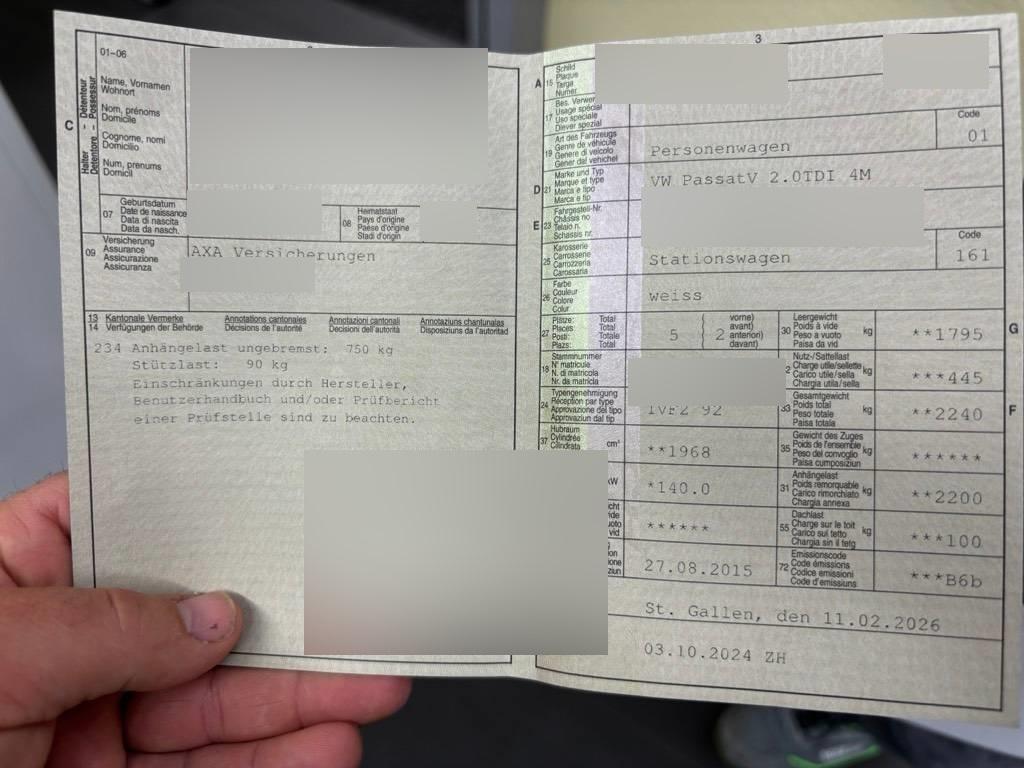 01-06
Name, Vornamen
Wohnort
Nom, prénoms
Domicile
Cognome, nomi
Domicilio
Num, prenums
Domicil
C
Halter – Détenteur
Detentore – Possessur
07
Geburtsdatum
Date de naissance
Data di nascita
Data da nasch.
08
Heimatstaat
Pays d'origine
Paese d'origine
Stadi d'origin
09
Versicherung
Assurance
Assicurazione
Assicuranza
AXA Versicherungen
13 Kantonale Vermerke Annotations cantonales Annotazioni cantonali Annotaziuns chantunalas
14 Verfügungen der Behörde Décisions de l'autorité Decisioni dell'autorità Disposiziuns da l'autoritad
234 Anhängelast ungebremst: 750 kg
Stützlast: 90 kg
Einschränkungen durch Hersteller,
Benutzerhandbuch und/oder Prüfbericht
einer Prüfstelle sind zu beachten.
3
A 15
Schild
Plaque
Targa
Numer
17
Bes. Verwen
Usage spécial
Uso speciale
Diever spezial
19
Art des Fahrzeugs
Genre de véhicule
Genere di veicolo
Gener dal vehichel
Personenwagen
Code
01
D 21
Marke und Typ
Marque et type
Marca e tipo
Marca e tip
VW PassatV 2.0TDI 4M
E 23
Fahrgestell-Nr.
Châssis no
Telaio n.
Schassis nr.
25
Karosserie
Carrosserie
Carrozzeria
Carossaria
Stationswagen
Code
161
26
Farbe
Couleur
Colore
Colur
weiss
27
Plätze: Total
Places: Total
Posti: Totale
Plazs: Total
5
2
vorne)
avant)
anteriori)
davant)
30
Leergewicht
Poids à vide
Peso a vuoto
Paisa da vid
kg
**1795
G
18
Stammnummer
N° matricule
N. di matricola
Nr. da matricla
Nutz-/Sattellast
Charge utile/sellette
Carico utile/sella
Chargia utila/sella
kg
***445
24
Typengenehmigung
Réception par type
Approvazione del tipo
Approvaziun dal tip
33
Gesamtgewicht
Poids total
Peso totale
Paisa totala
kg
**2240
F
37
Hubraum
Cylindrée
Cilindrata
cm³
**1968
35
Gewicht des Zuges
Poids de l'ensemble
Peso del convoglio
Paisa cumposiziun
kg
******
kW
*140.0
31
Anhängelast
Poids remorquable
Carico rimorchiato
Chargia annexa
kg
**2200
******
55
Dachlast
Charge sur le toit
Carico sul tetto
Chargia sin il tetg
kg
***100
27.08.2015
72
Emissionscode
Code émissions
Codice emissioni
Code d'emissiuns
***B6b
St. Gallen, den 11.02.2026
03.10.2024 ZH